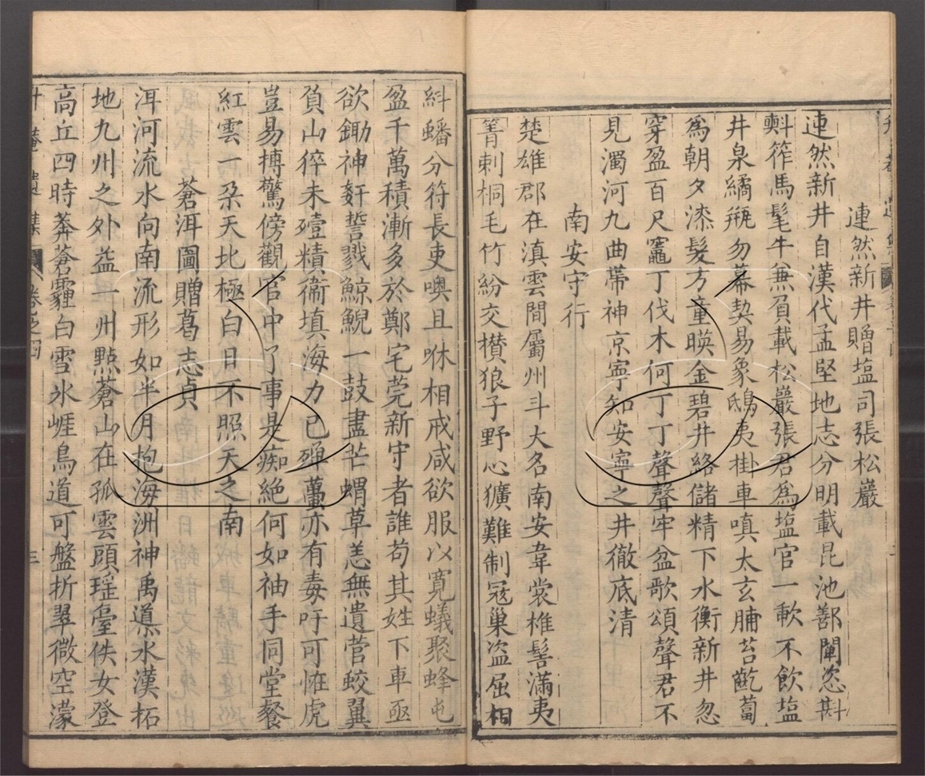 連然新井贈塩司張松巖
連然新井自漢代孟堅地志分明載昆池鄯闡恣斟
㪺筰馬髦牛兼負載松巖張君為塩官一歃不飲塩
井泉繘瓶勿幕契易象鴟夷掛車嗔太玄脯苔
為朝夕漆髮方童暎金碧井絡儲精下水衡新井忽
穿盈百尺竈丁伐木何丁丁聲聲牢盆歌頌聲君不
見濁河九曲帶神京寧知安寧之井徹底清
南安守行
楚雄郡在滇雲間屬州斗大名南安韋裳椎髻滿夷
箐刺桐毛竹紛交攢狼子野心獷難制冦巢盗屈相
紏蟠分符長吏噢且咻相戒咸欲服以寛蟻聚蜂屯
盈千萬積漸多於鄭宅莞新守者誰苟其姓下車亟
欲鋤神奸誓戮鯨鯢一鼓盡芒蝟草恙無遺菅蛟翼
負山猝未殪精衞填海力已殫蠆亦有毒吁可恠虎
豈易搏驚傍觀官中了事是痴絶何如袖手同堂餐
紅雲一朶天北極白日不照天之南
蒼洱圖贈葛志貞
洱河流水向南流形如半月抱海洲神禹導黑水漢柘
地九州之外益一州點蒼山在孤雲頭瑶臺佚女登
高丘四時莾蒼霾白雪氷崕鳥道可盤折翠微空濛
卷之四
三